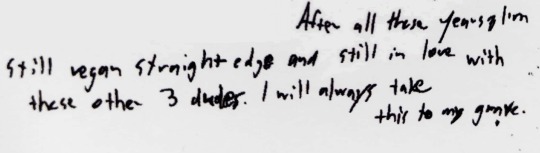 After all these years I'm
still vegan straight edge and still in love with
these other 3 dudes. I will always take
this to my grave.